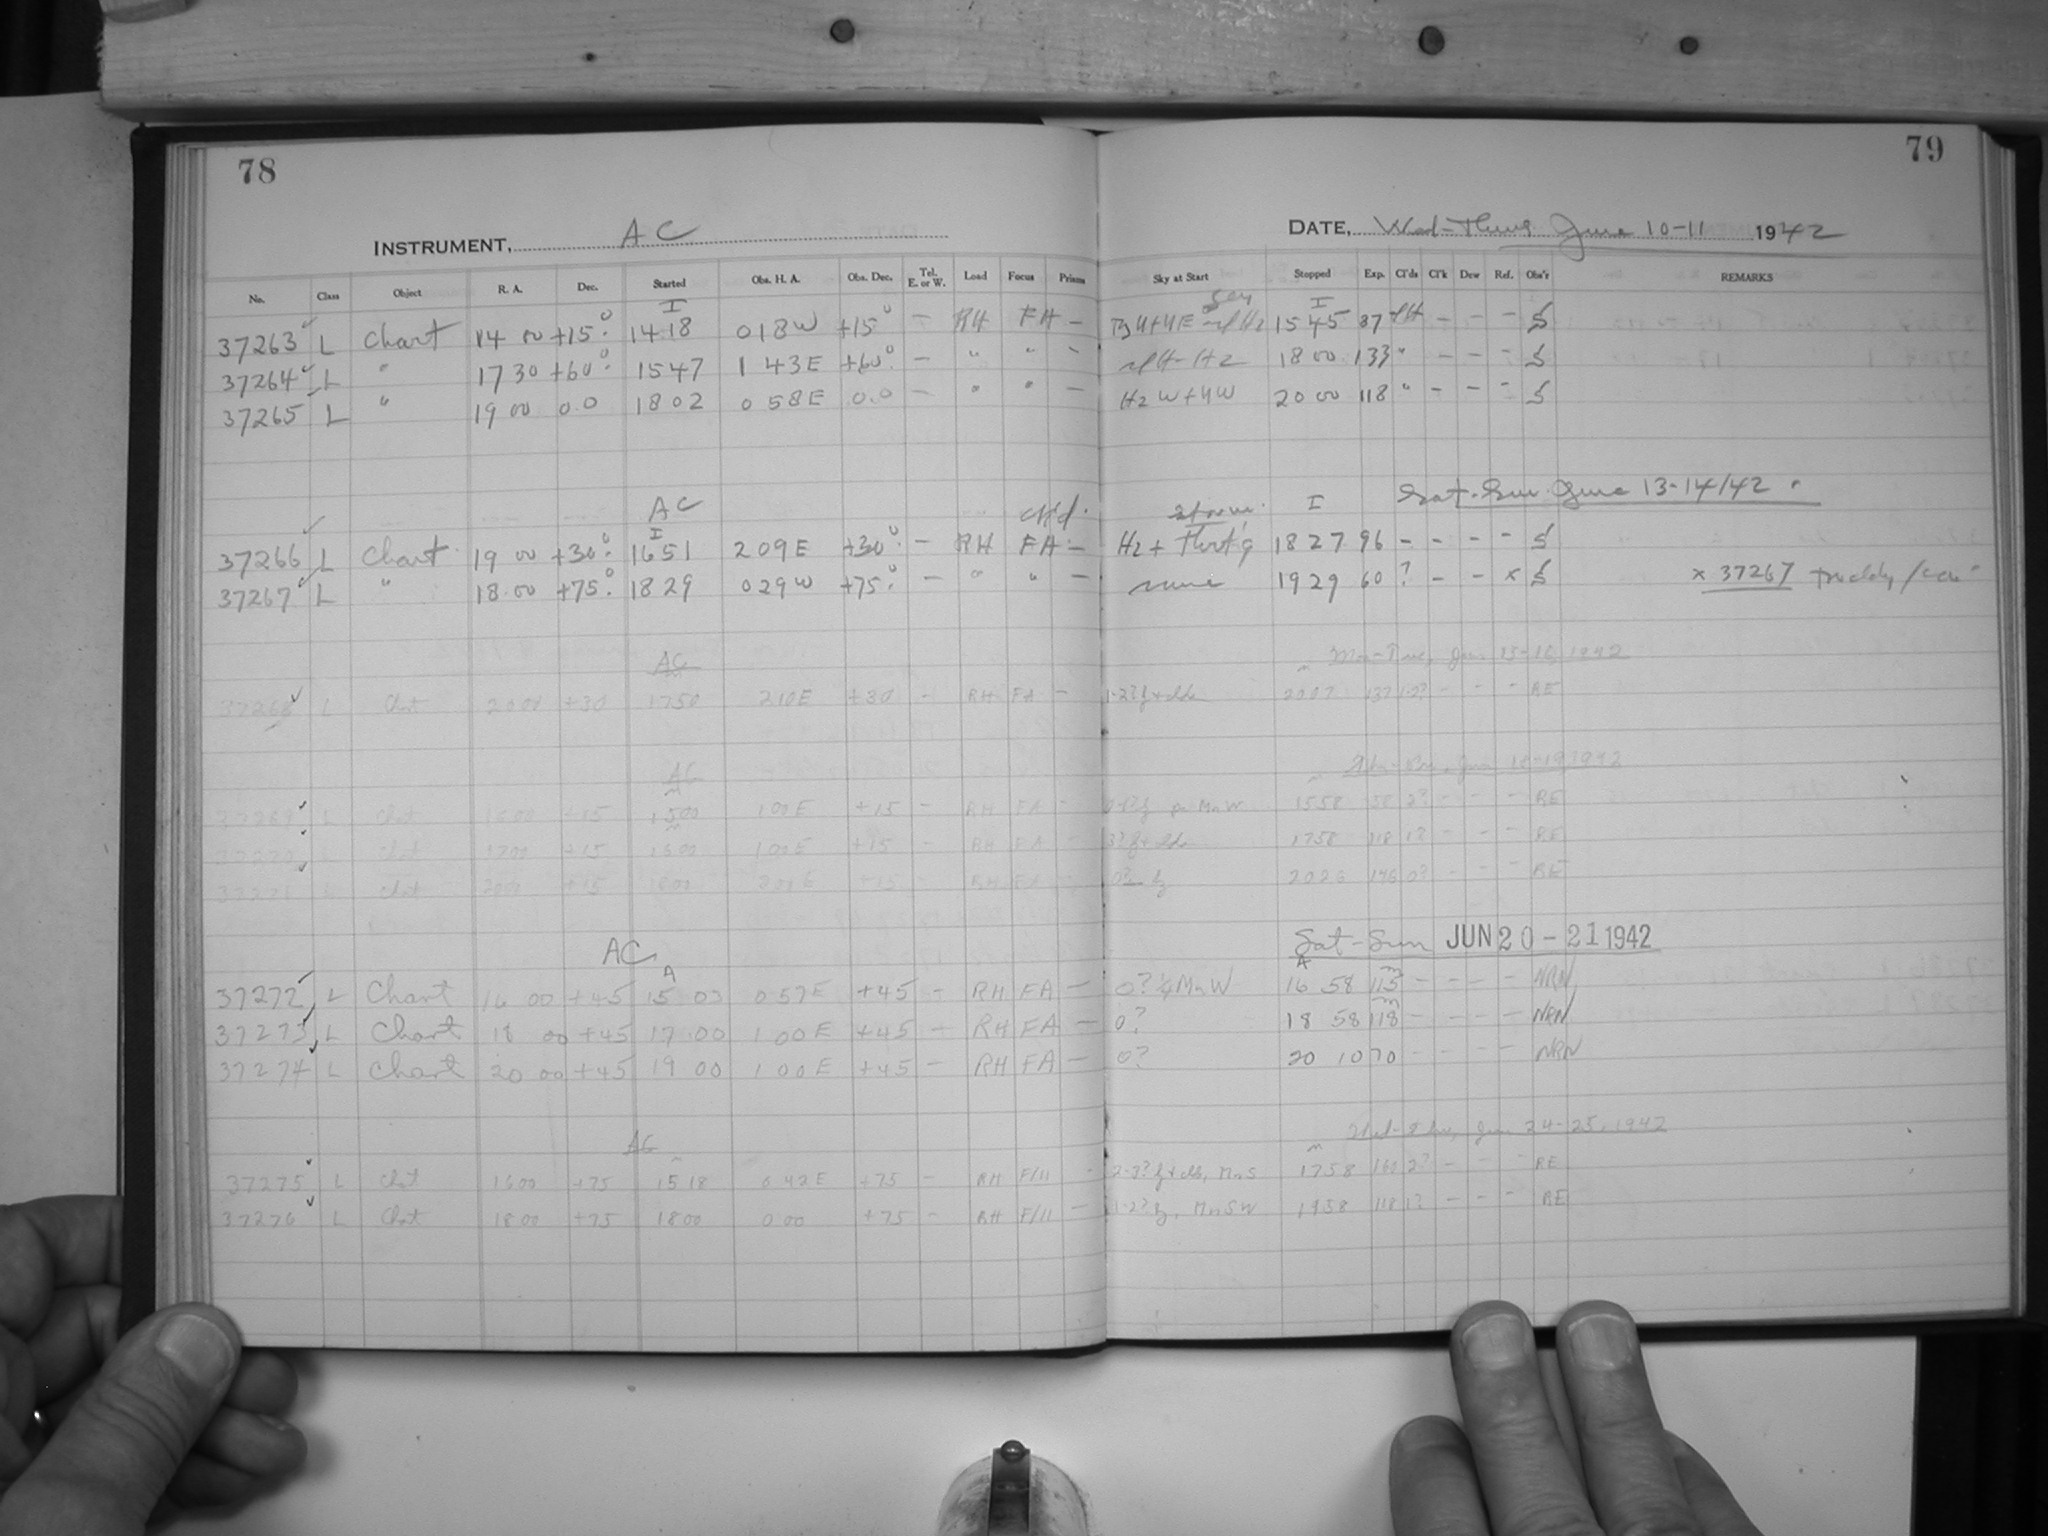 78
79
INSTRUMENT, AC
DATE, Wed-Thurs June 10-11 1942
No. Class Object R. A. Dec. Started Obs. H. A. Obs. Dec. Tel. E. or W. Load Focus Prisms Sky at Start Stopped Exp. Cl'ds Cl'k Dew Ref. Obs'r REMARKS
I I
37263 L Chart 14 00 +15° 14 18 0 18 W +15° - RH FA - 15 45 87 - - - S
37264 L " 17 30 +60° 15 47 1 43 E +60° - " " - 18 00 133 " - - - S
37265 L " 19 00 0.0 18 02 0 58 E 0.0 - " " - Hz W + 4W 20 00 118 " - - - S
AC I Sat-Sun June 13-14/42
I
37266 L Chart 19 00 +30° 16 51 2 09 E +30° - RH FA - Hz + 18 27 96 - - - - S
37267 L " 18 00 +75° 18 29 0 29 W +75° - " " - 19 29 60 ? - - x S x 37267
AC Mon-Tue, Jun 15-16, 1942
37268 L Chart 20 00 +30 17 50 2 10 E +30 - RH FA - 20 07 137 1-2? - - - RE
AC 1942
37269 L Chart 16 00 +15 15 00 1 00 E +15 - RH FA - MnW 15 58 58 2? - - - RE
37270 L Chart 17 00 +15 16 00 1 00 E +15 - RH FA - 17 58 118 1? - - - RE
37271 L Chart 20 00 +15 18 00 2 00 E +15 - RH FA - 20 26 146 0? - - - RE
AC Sat-Sun JUN 20-21 1942
A A
37272 L Chart 16 00 +45 15 03 0 57 E +45 - RH FA - 0? ¼ Mn W 16 58 115 - - - - NRN
37273 L Chart 18 00 +45 17 00 1 00 E +45 - RH FA - 0? 18 58 118 - - - - NRN
37274 L Chart 20 00 +45 19 00 1 00 E +45 - RH FA - 0? 20 10 70 - - - - NRN
AC Wed-Thu, Jun 24-25, 1942
37275 L Chart 16 00 +75 15 18 0 42 E +75 - RH F/11 - Mn S 17 58 160 2? - - - RE
37276 L Chart 18 00 +75 18 00 0 00 +75 - RH F/11 - Mn SW 19 58 118 1? - - - RE